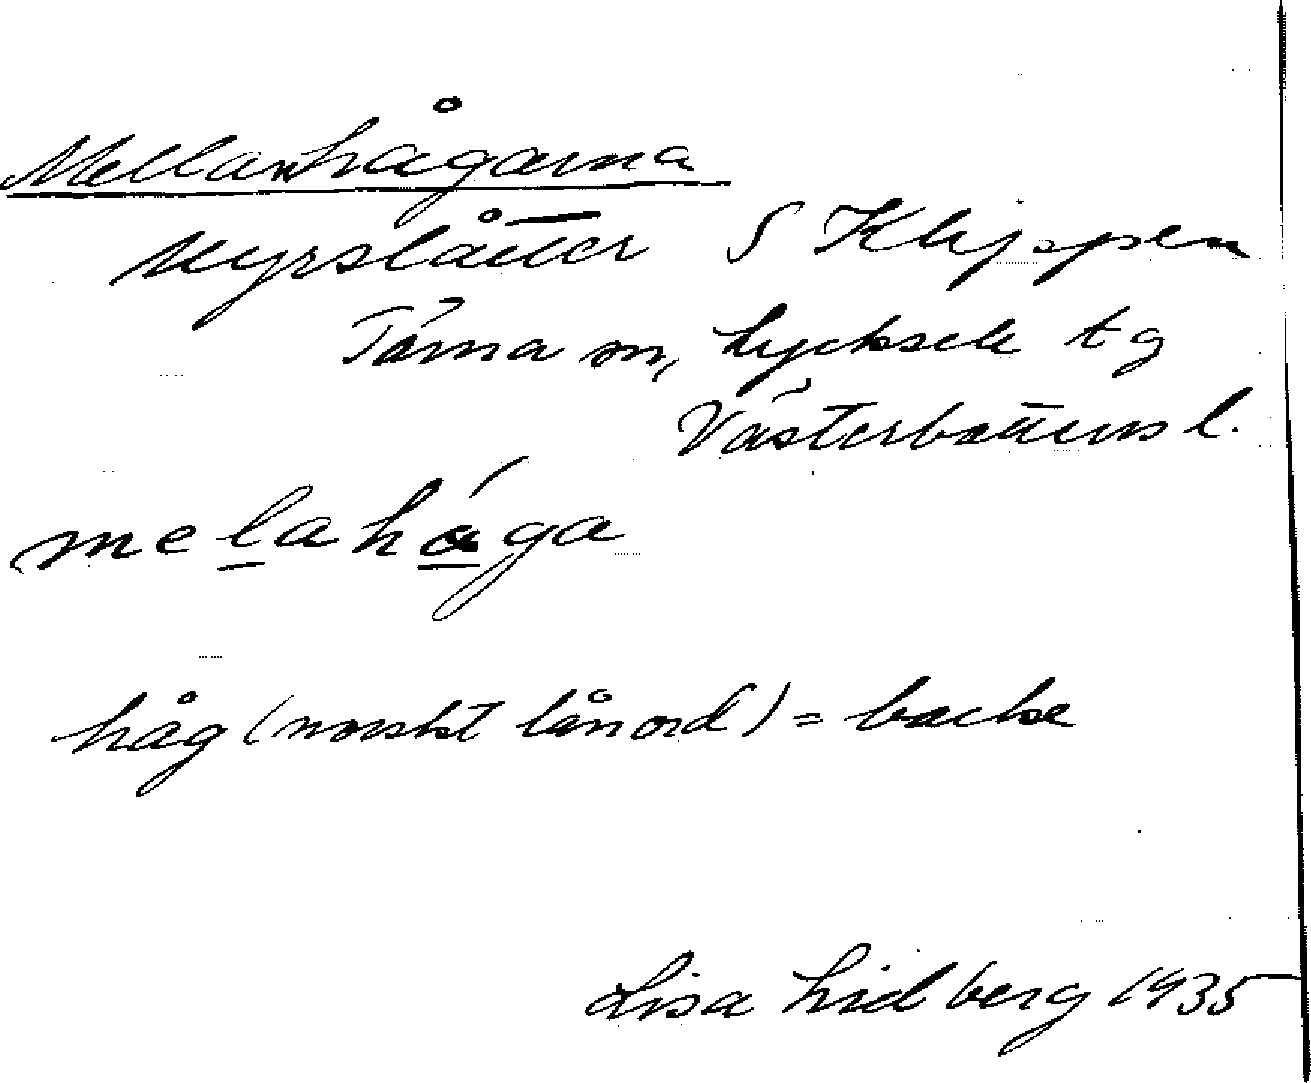 Mellanhågarna
Myrslåtter S Klippen
Tärna sn, Lycksele tg
Västerbottens l.
melahåga
håg (norskt lånord) = backe
Lisa Lidberg 1935